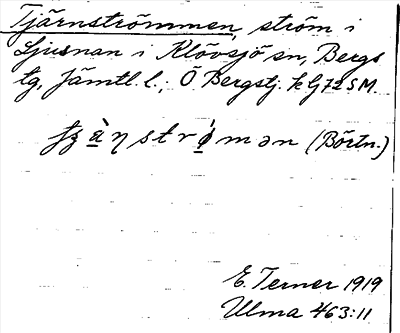 Tjärnströmmen, ström i
Ljusnan i Klövsjö sn, Bergs
tg, Jämtl. l.; Ö Bergstj.
(Börtn.)
E. Terner 1919
Ulma 463:11